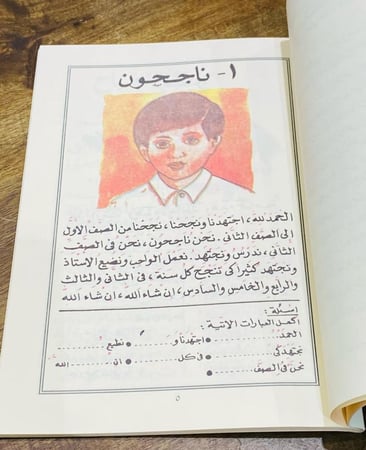 ١- ناجحون
الحمد لله، اجتهدنا ونجحنا، نجحنا من الصف الاول
إلى الصف الثاني. نحن ناجحون، نحن في الصف
الثاني، ندرس ونجتهد. نعمل الواجب ونطيع الاستاذ
ونجتهد كثيرا كي ننجح كل سنة، في الثاني والثالث
والرابع والخامس والسادس، إن شاء الله، ان شاء الله
اسئلة :
اكمل العبارات الاتية :
الحمد .......... • اجتهدنا و .......... • نطيع ..........
نجتهد كي .......... • في كل .......... • ان .......... الله
نحن في الصف .......... •
٥